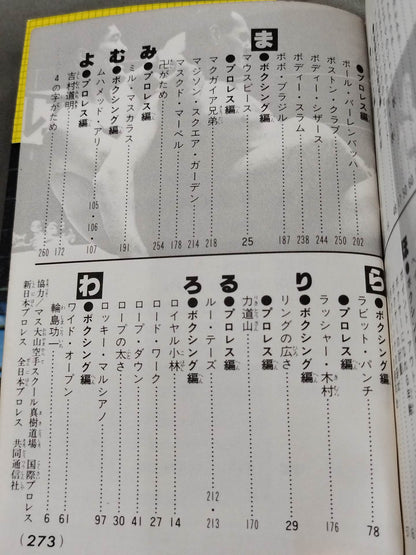 ●プロレス編
ポール・バーレンバッハ……202
ボストン・クラブ……250
ボディー・シザース……244
ボディー・スラム……238
ボボ・ブラジル……187
ま
●ボクシング編
マウスピース……25
●プロレス編
マクガイア兄弟……218
マジソン・スクエア・ガーデン……214
マスクド・マーベル……178
卍がため……254
み
●プロレス編
ミル・マスカラス……191
む
●ボクシング編
ムハメッド・アリ……105・106・107
よ
●プロレス編
吉村道明……172
4の字がため……260
ら
●ボクシング編
ラビット・パンチ……78
●プロレス編
ラッシャー・木村……176
り
●ボクシング編
リングの広さ……29
●プロレス編
力道山……170
る
●プロレス編
ルー・テーズ……212・213
ろ
●ボクシング編
ロイヤル小林……14
ロード・ワーク……27
ロープ・ダウン……41
ロープの太さ……30
ロッキー・マルシアノ……97
わ
●ボクシング編
ワイド・オープン……61
輪島功一……6
協力/マス大山空手スクール真樹道場 国際プロレス
新日本プロレス 全日本プロレス 共同通信社
(273)